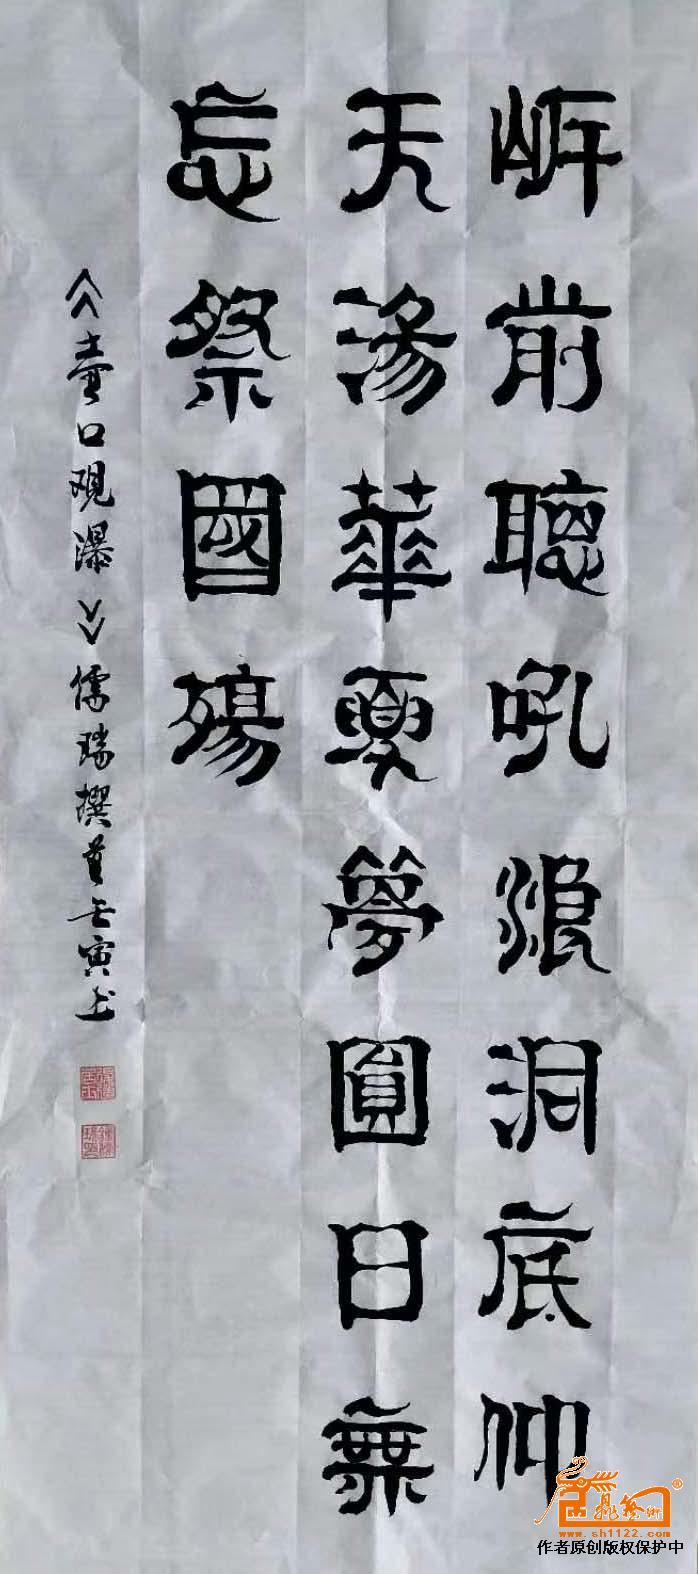 岍前聽吼浪洞底仰
天湯華夏夢圓日無
忘祭國殤
《壶口观瀑》儒瑞撰首壬寅书
www.sh1122.com
作者原创版权保护中